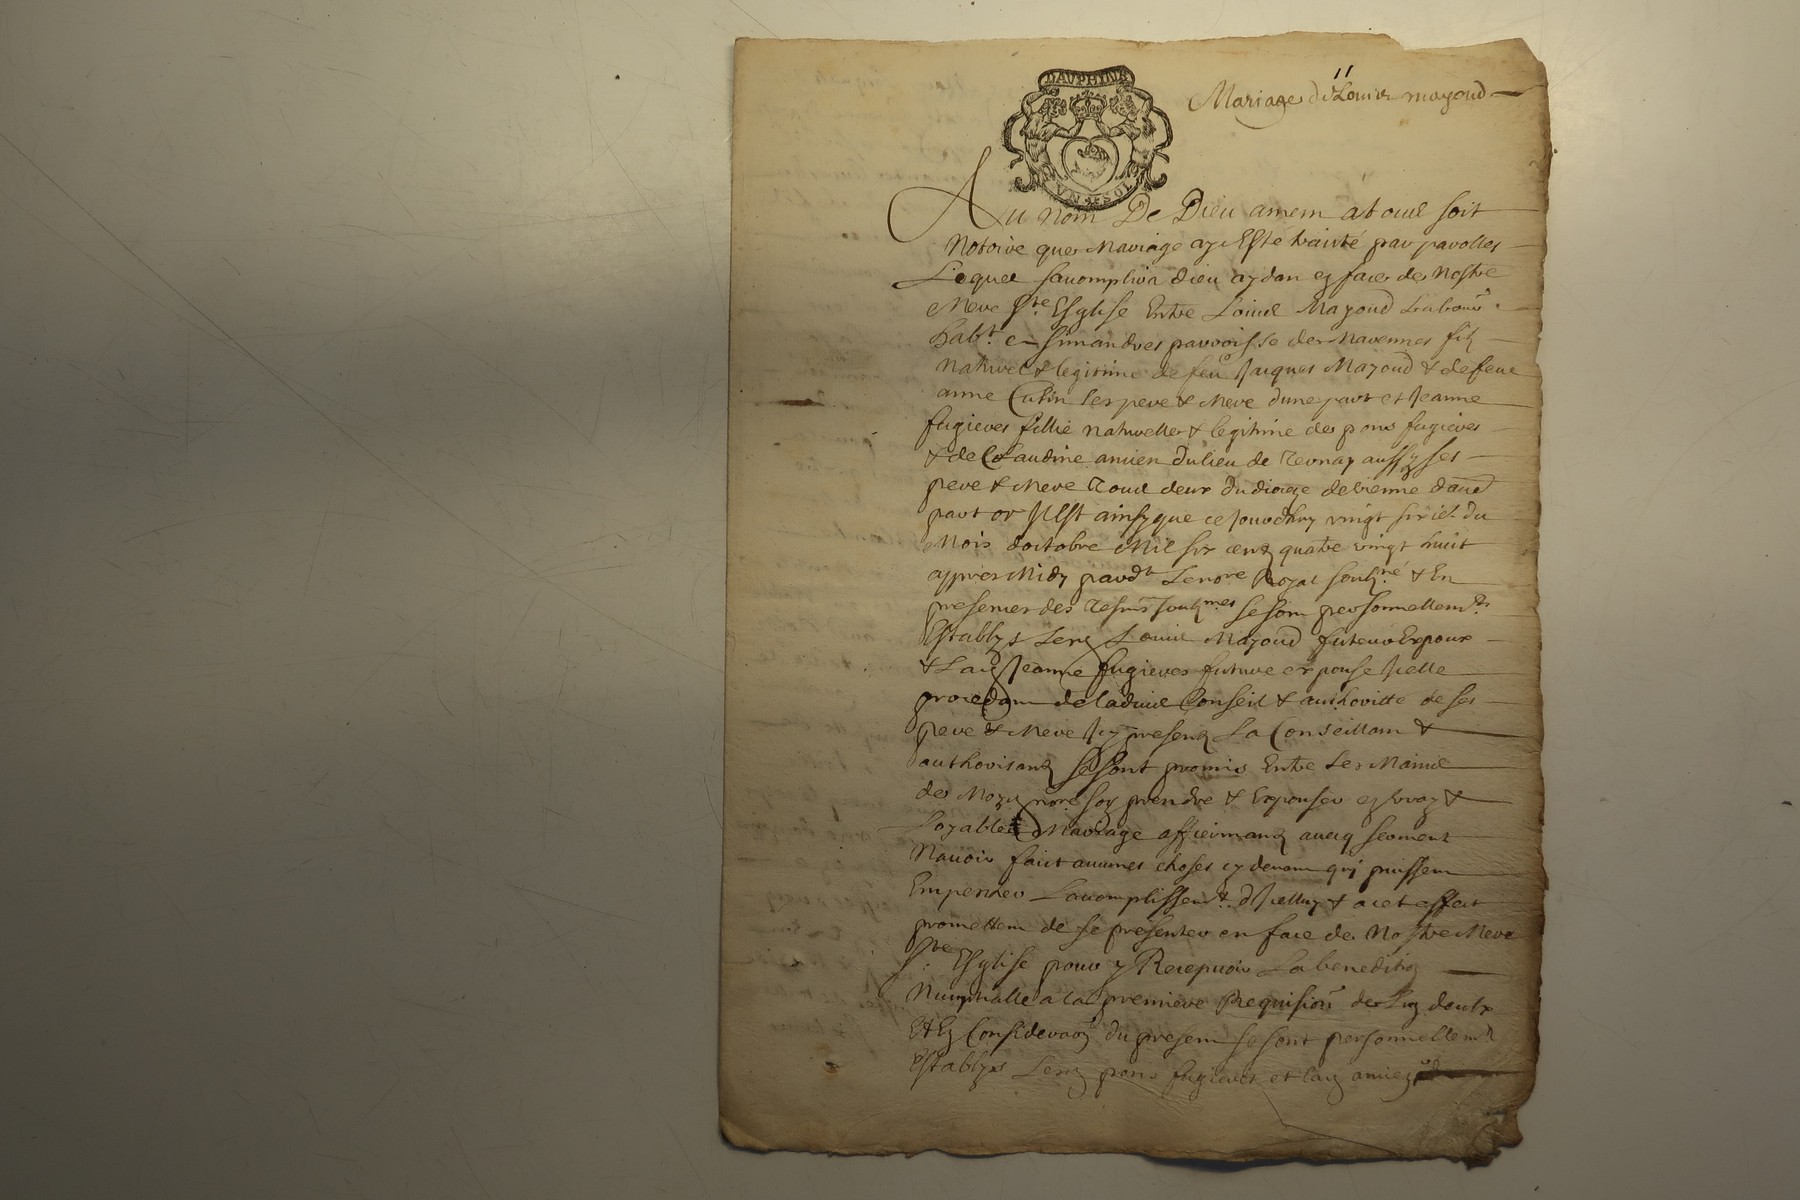 DAUPHINE
Mariage de Louis mazoud
UN SOL
Au nom De Dieu amem a tous soit
Notoire que Mariage ay Este traitté par parolles
Lequel saccomplira dieu aydan en face de Nostre
Mere Ste Esglise Entre Louis Mazoud Labour
habt. en simandres parroisse de Marennes filz
naturel & legitime de feu Jaques Mazoud & de feue
anne Cutin ses pere & Mere dune part et Jeanne
fugieres fillie naturelle & legitime de pons fugieres
& de Claudine amien du lieu de Ternay aussy ses
pere & Mere Tous deux du dioceze de vienne dautre
part or Il Est ainsy que ce jourdhuy vingt sixie. du
Mois doctobre Mil six centz quatre vingt huit
appres Midy pardt Le nore Royal soubne & En
presences des Tesmt soubmes se som personnellemt
Establys Led Louis Mazoud futeur Expoux
& Lad Jeanne fugieres future expouse Icelle
procedam de ladvis Conseil & authoritte de ses
pere & Mere Icy presentz La Conseillam &
authorisantz se sont promis Entre Les Mains
de Moy nore soy prendre & Expouser en vray &
Loyable Mariage affiermantz avecq serment
Navoir faict aucunes choses cy devam qui puissem
Empescher Laccomplissemt. dIcelluy & a cet effect
promettem de se presenter en face de Nostre Mere
Ste Esglise pour y Recepvoir La beneditio
Nuptialle a la premiere Requision de Lun deulx
Et En Consideraon du present se sont personnellemt
Establys Led pons fugieres et lad amien